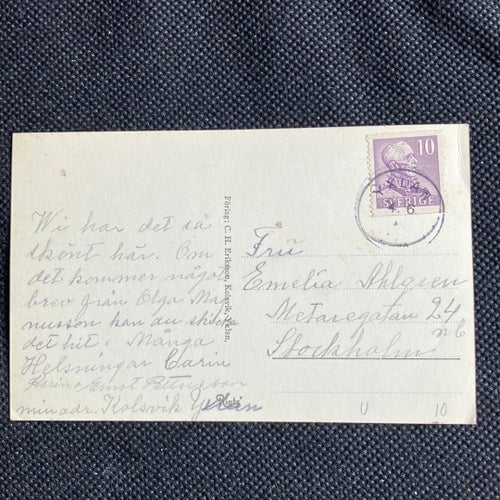 Wi har det så
skönt här. Om
det kommer något
brev från Olga Mag
nusson kan du skicka
det hit. Många
Helsningar Carin
Ernst Pettersson
min adr. Kolsvik
Förlag: C. H. Eriksson, Kolsvik, Yxlan.
10
SVERIGE
6
Fru
Emelia Ahlgren
Metaregatan 24
nb
Stockholm
U 10